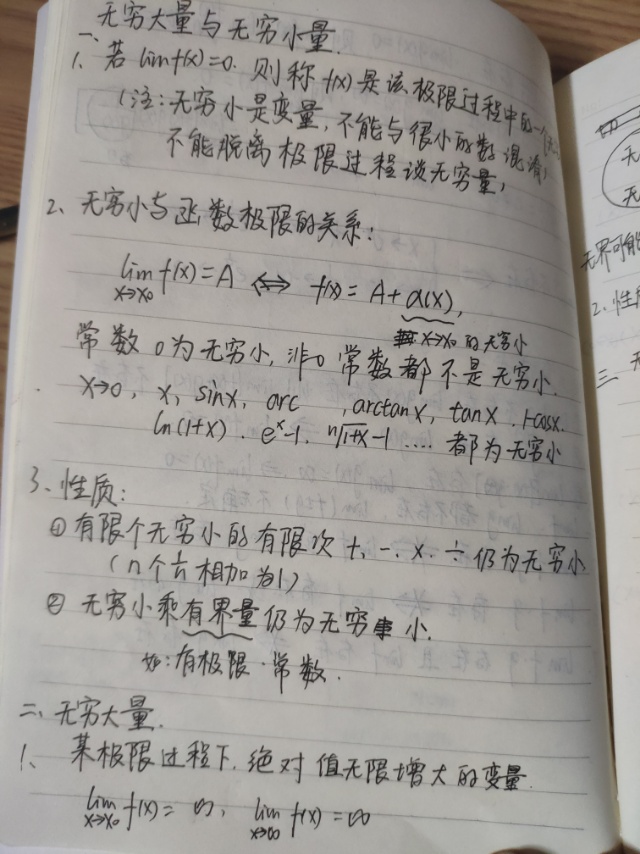 无穷大量与无穷小量
一、
1. 若 lim f(x)=0. 则称 f(x) 是该极限过程中的一个
(注:无穷小是变量,不能与很小的数混淆,
不能脱离极限过程谈无穷量,
2、无穷小与函数极限的关系:
lim f(x)=A ⟺ f(x)=A+α(x),
x→x₀
x→x₀ 的无穷小
常数 0 为无穷小, 非0 常数都不是无穷小.
x→0, x, sinx, arc , arctanx, tanx. 1-cosx.
ln(1+x). eˣ-1. ⁿ√1+x -1 .... 都为无穷小
3、性质:
① 有限个无穷小的有限次 +、-、×、÷ 仍为无穷小
(n个 相加为1)
② 无穷小乘有界量仍为无穷小.
如:有极限.常数.
二、无穷大量.
1、某极限过程下.绝对值无限增大的变量.
lim f(x)=∞, lim f(x)=∞
x→x₀ x→∞
无
无
无界可能
2.性
三、